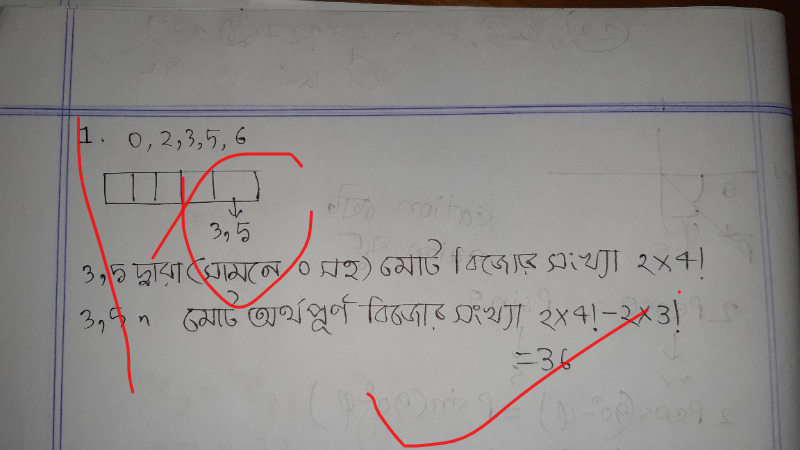 1. 0, 2, 3, 5, 6
3, 5
3, 5 দ্বারা (সামনে 0 সহ) মোট বিজোর সংখ্যা 2×4!
3, 5 " মোট অর্থপূর্ণ বিজোর সংখ্যা 2×4! - 2×3!
= 36